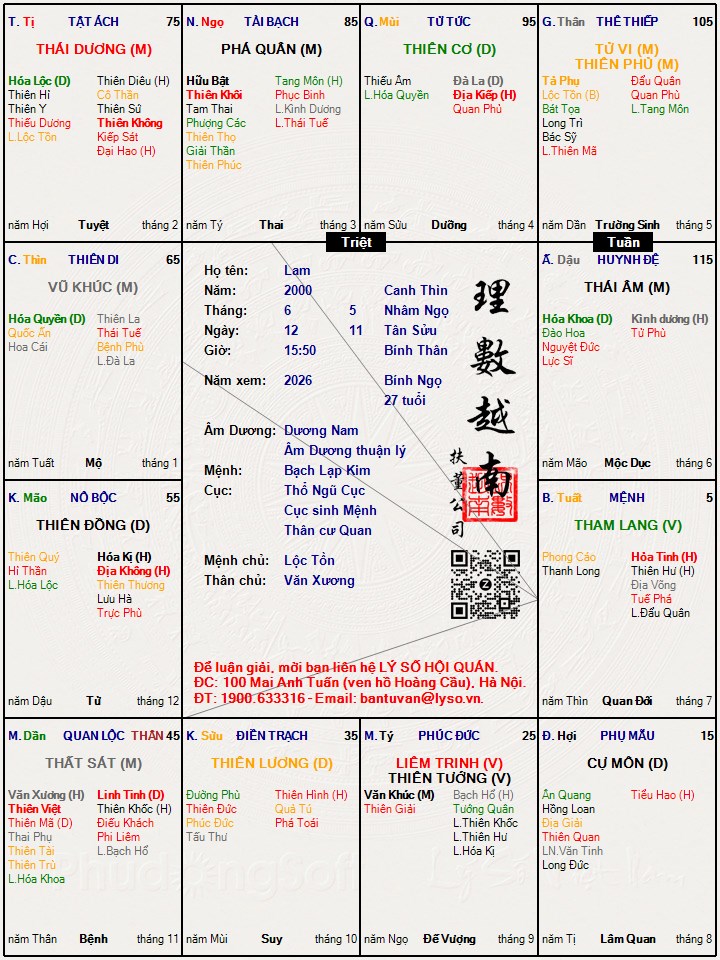 T. Tị TẬT ÁCH 75
THÁI DƯƠNG (M)
Hóa Lộc (D) Thiên Diêu (H)
Thiên Hỉ Cô Thần
Thiên Y Thiên Sứ
Thiếu Dương Thiên Không
L.Lộc Tồn Kiếp Sát
Đại Hao (H)
năm Hợi Tuyệt tháng 2
N. Ngọ TÀI BẠCH 85
PHÁ QUÂN (M)
Hữu Bật Tang Môn (H)
Thiên Khôi Phục Binh
Tam Thai L.Kình Dương
Phượng Các L.Thái Tuế
Thiên Thọ
Giải Thần
Thiên Phúc
năm Tý Thai tháng 3
Q. Mùi TỬ TỨC 95
THIÊN CƠ (D)
Thiếu Âm Đà La (D)
L.Hóa Quyền Địa Kiếp (H)
Quan Phủ
năm Sửu Dưỡng tháng 4
G. Thân THÊ THIẾP 105
TỬ VI (M)
THIÊN PHỦ (M)
Tả Phụ Đẩu Quân
Lộc Tồn (B) Quan Phù
Bát Tọa L.Tang Môn
Long Trì
Bác Sỹ
L.Thiên Mã
năm Dần Trường Sinh tháng 5
Triệt
Tuần
C. Thìn THIÊN DI 65
VŨ KHÚC (M)
Hóa Quyền (D) Thiên La
Quốc Ấn Thái Tuế
Hoa Cái Bệnh Phù
L.Đà La
năm Tuất Mộ tháng 1
Họ tên: Lam
Năm: 2000 Canh Thìn
Tháng: 6 5 Nhâm Ngọ
Ngày: 12 11 Tân Sửu
Giờ: 15:50 Bính Thân
Năm xem: 2026 Bính Ngọ
27 tuổi
Âm Dương: Dương Nam
Âm Dương thuận lý
Mệnh: Bạch Lạp Kim
Cục: Thổ Ngũ Cục
Cục sinh Mệnh
Thân cư Quan
Mệnh chủ: Lộc Tồn
Thân chủ: Văn Xương
理數越南
扶董公司
Để luận giải, mời bạn liên hệ LÝ SỐ HỘI QUÁN.
ĐC: 100 Mai Anh Tuấn (ven hồ Hoàng Cầu), Hà Nội.
ĐT: 1900.633316 - Email: bantuvan@lyso.vn.
Ấ. Dậu HUYNH ĐỆ 115
THÁI ÂM (M)
Hóa Khoa (D) Kình dương (H)
Đào Hoa Tử Phù
Nguyệt Đức
Lực Sĩ
năm Mão Mộc Dục tháng 6
K. Mão NÔ BỘC 55
THIÊN ĐỒNG (D)
Thiên Quý Hóa Kị (H)
Hỉ Thần Địa Không (H)
L.Hóa Lộc Thiên Thương
Lưu Hà
Trực Phù
năm Dậu Tử tháng 12
B. Tuất MỆNH 5
THAM LANG (V)
Phong Cáo Hỏa Tinh (H)
Thanh Long Thiên Hư (H)
Địa Võng
Tuế Phá
L.Đẩu Quân
năm Thìn Quan Đới tháng 7
M. Dần QUAN LỘC THÂN 45
THẤT SÁT (M)
Văn Xương (H) Linh Tinh (D)
Thiên Việt Thiên Khốc (H)
Thiên Mã (D) Điếu Khách
Thai Phụ Phi Liêm
Thiên Tài L.Bạch Hổ
Thiên Trù
L.Hóa Khoa
năm Thân Bệnh tháng 11
K. Sửu ĐIỀN TRẠCH 35
THIÊN LƯƠNG (D)
Đường Phù Thiên Hình (H)
Thiên Đức Quả Tú
Phúc Đức Phá Toái
Tấu Thư
năm Mùi Suy tháng 10
M. Tý PHÚC ĐỨC 25
LIÊM TRINH (V)
THIÊN TƯỚNG (V)
Văn Khúc (M) Bạch Hổ (H)
Thiên Giải Tướng Quân
L.Thiên Khốc
L.Thiên Hư
L.Hóa Kị
năm Ngọ Đế Vượng tháng 9
Đ. Hợi PHỤ MẪU 15
CỰ MÔN (D)
Ân Quang Tiểu Hao (H)
Hồng Loan
Địa Giải
Thiên Quan
LN.Văn Tinh
Long Đức
năm Tị Lâm Quan tháng 8